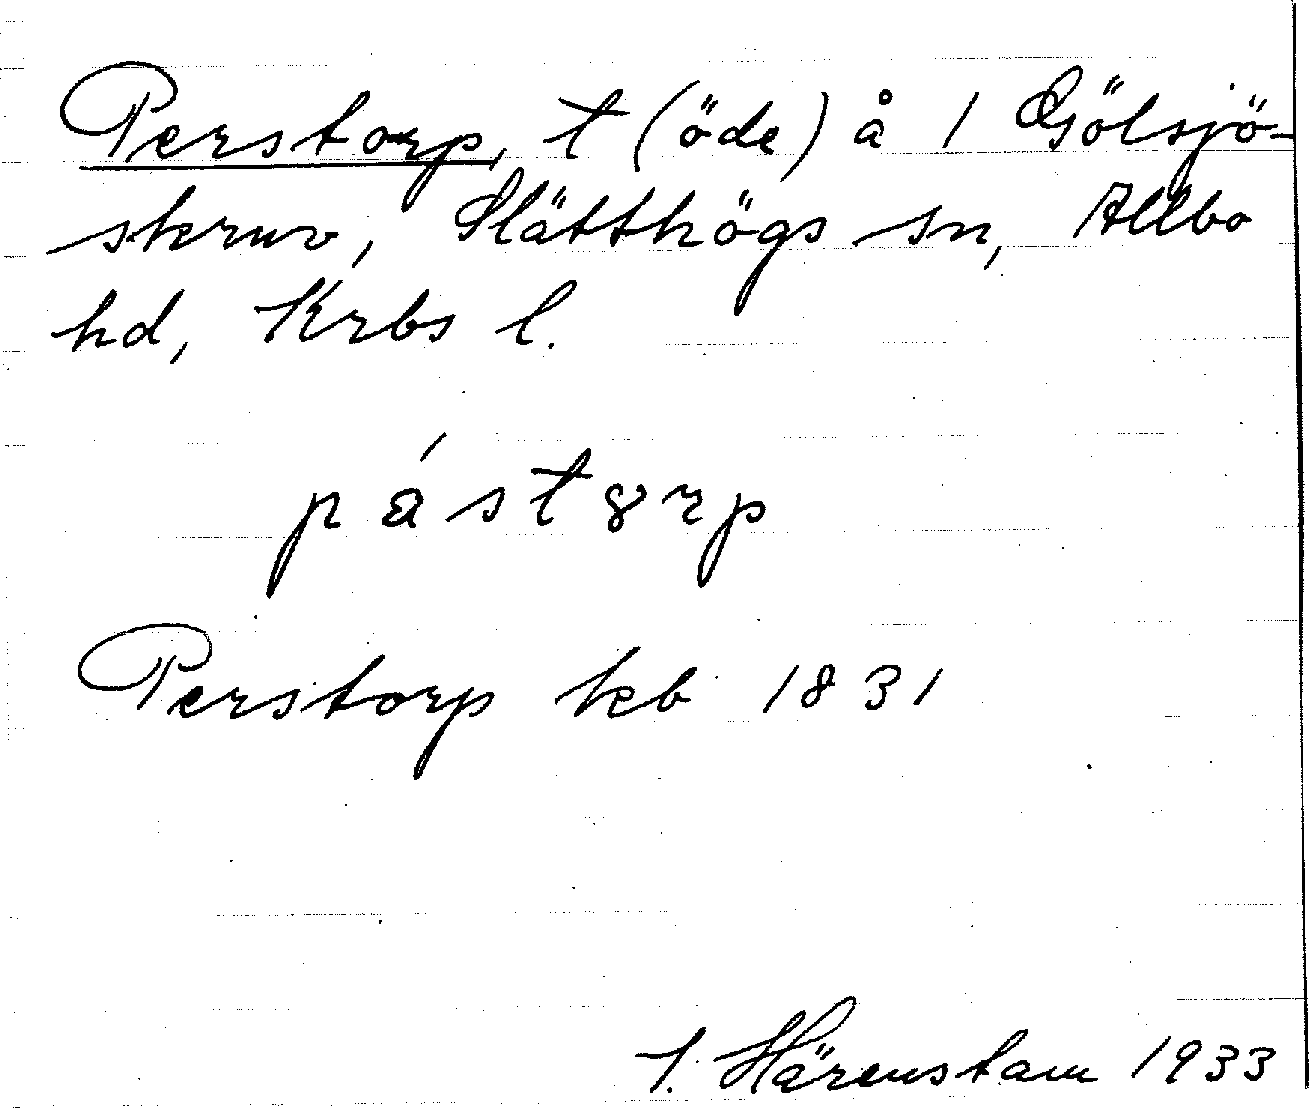 Perstorp, t (öde) å 1 Gölsjö-
skruv, Slätthögs sn, Allbo
hd, Krbs l.
pástȣrp
Perstorp kb 1831
I. Härenstam 1933